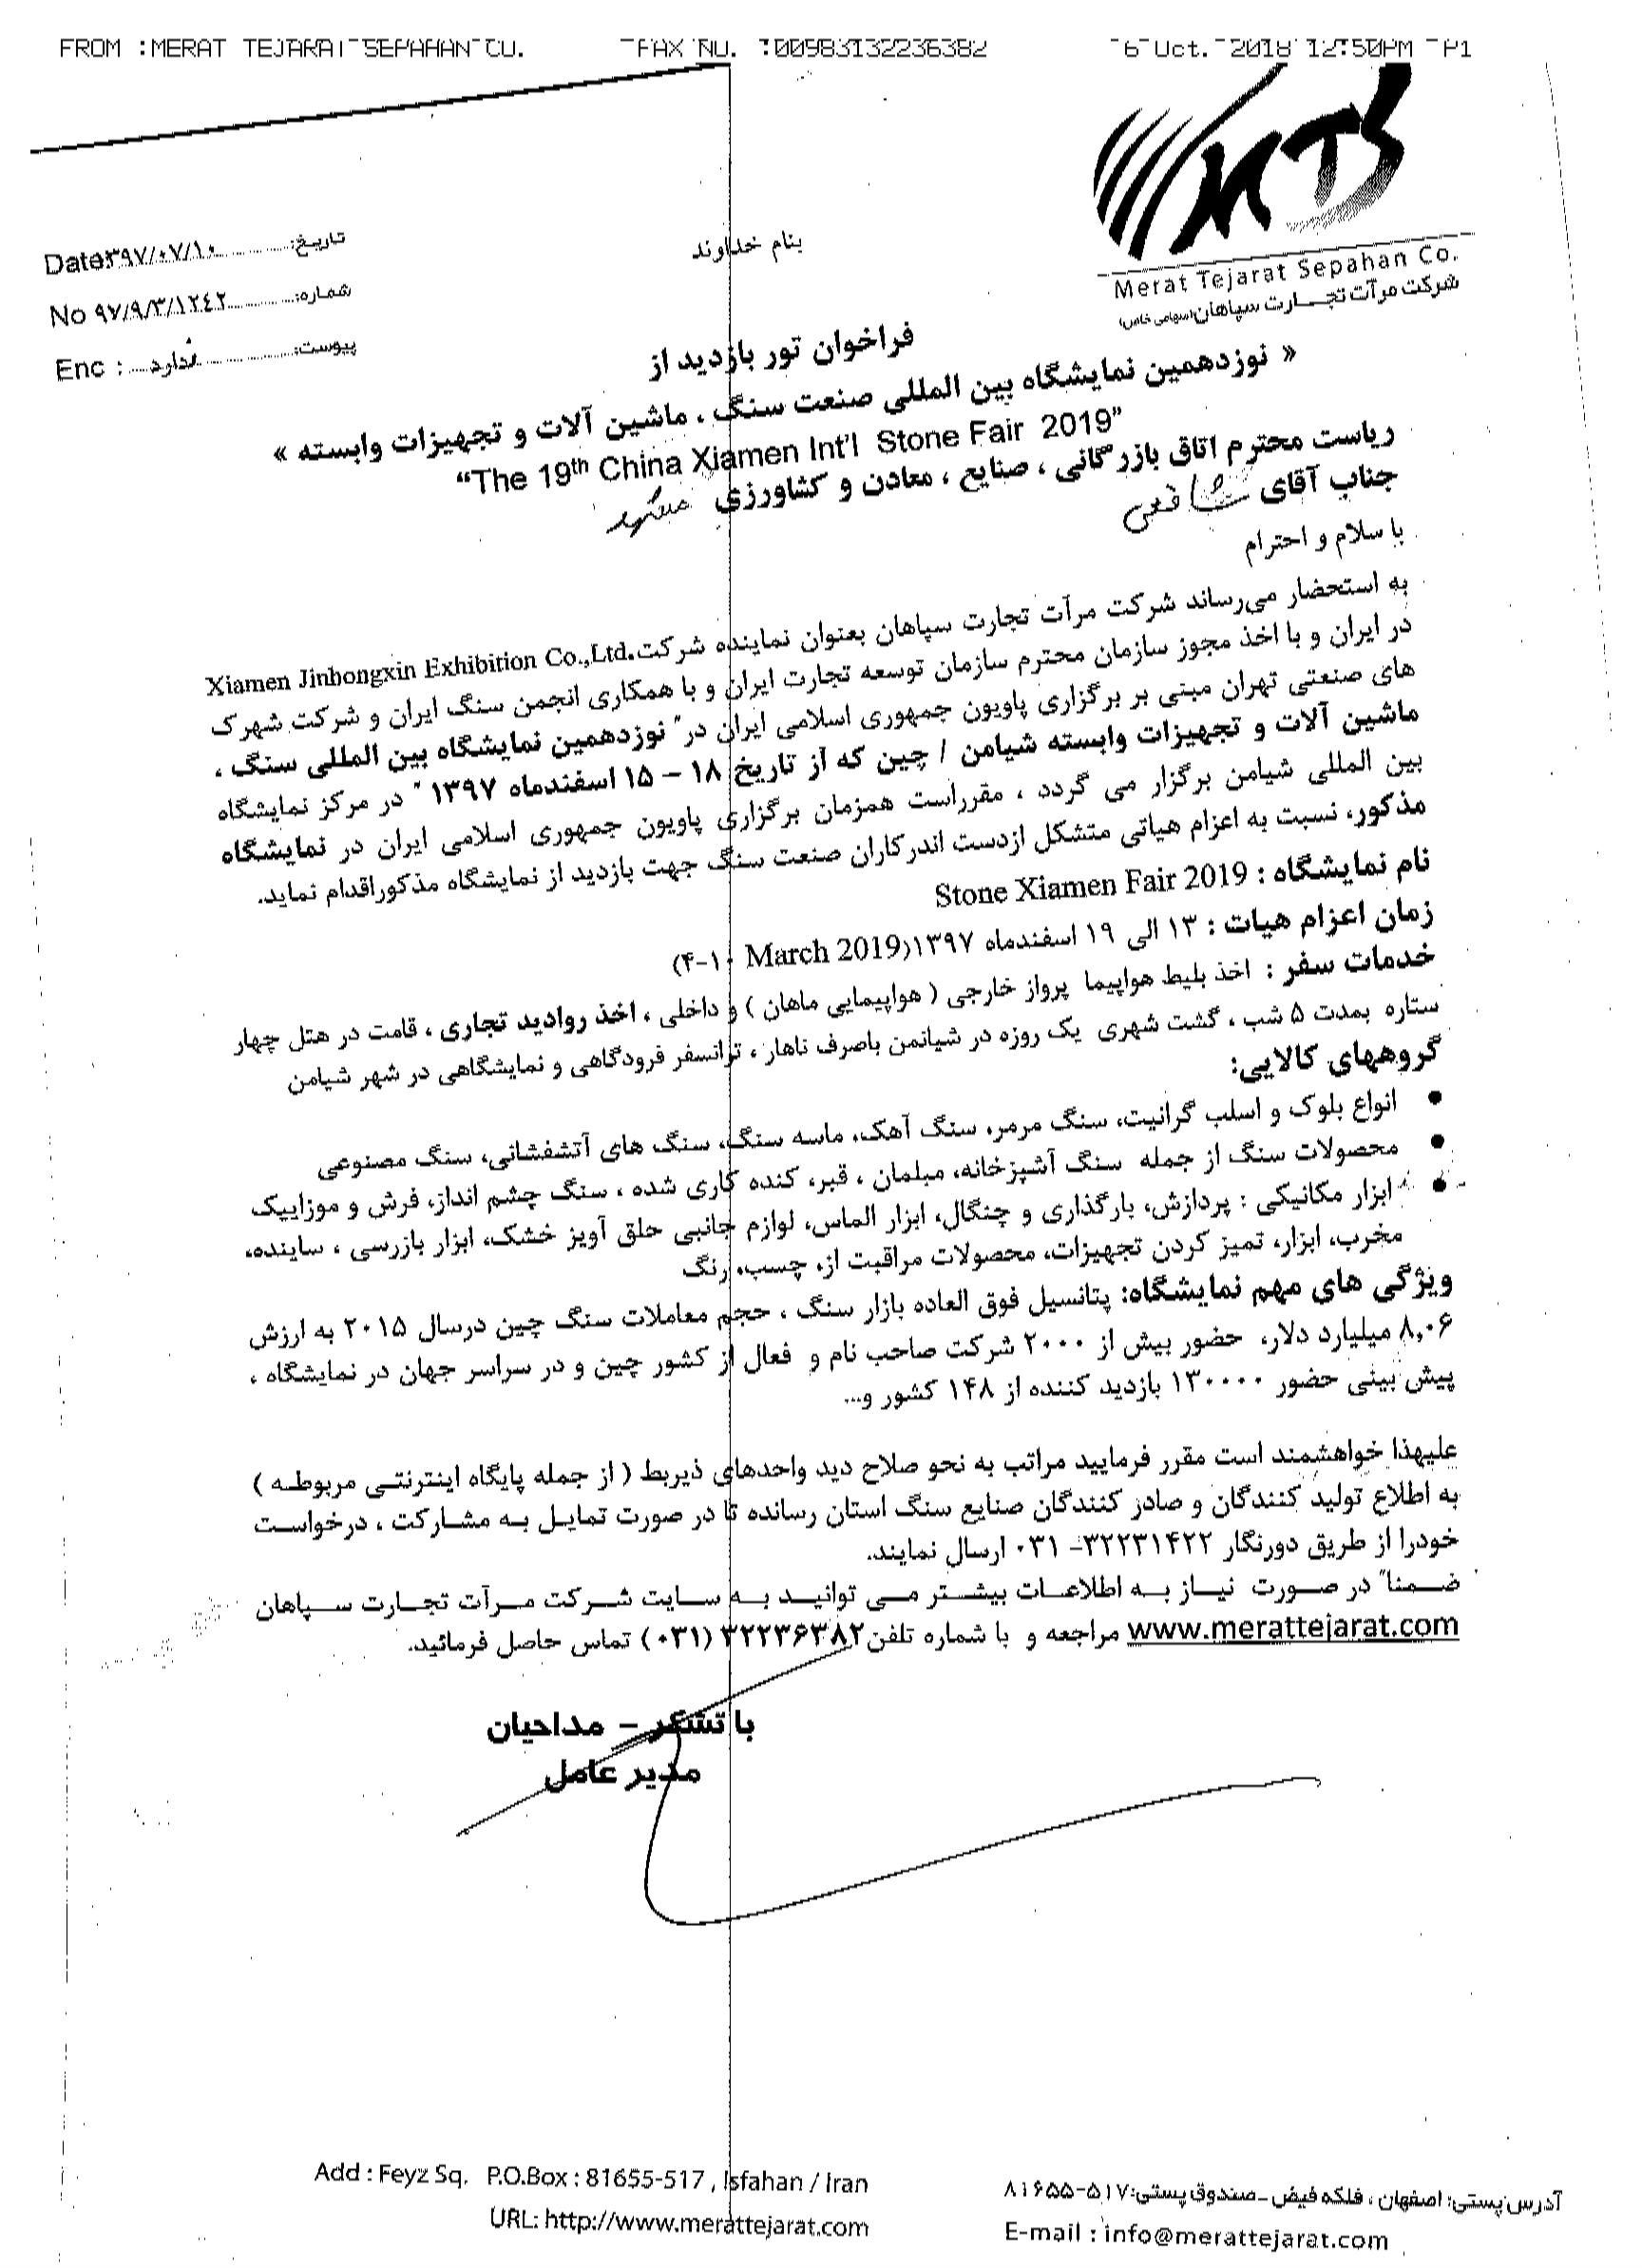 FROM :MERAT TEJARAT SEPAHAN CO. FAX NO. :00983132236382 6 Oct. 2018 12:50PM P1
MTS
Merat Tejarat Sepahan Co.
شرکت مرآت تجــارت سپاهان(سهامی خاص)
بنام خداوند
تاریخ: ۱۳۹۷/۰۷/۱۰ Date
شماره: ۹۷/۹/۳/۱۲۴۲ No
پیوست: ندارد Enc :
فراخوان تور بازدید از
« نوزدهمین نمایشگاه بین المللی صنعت سنگ ، ماشین آلات و تجهیزات وابسته »
“The 19th China Xiamen Int'l Stone Fair 2019”
ریاست محترم اتاق بازرگانی ، صنایع ، معادن و کشاورزی مشهد
جناب آقای شافعی
با سلام و احترام
به استحضار می‌رساند شرکت مرآت تجارت سپاهان بعنوان نماینده شرکت Xiamen Jinhongxin Exhibition Co.,Ltd.
در ایران و با اخذ مجوز سازمان محترم سازمان توسعه تجارت ایران و با همکاری انجمن سنگ ایران و شرکت شهرک
های صنعتی تهران مبنی بر برگزاری پاویون جمهوری اسلامی ایران در" نوزدهمین نمایشگاه بین المللی سنگ ،
ماشین آلات و تجهیزات وابسته شیامن / چین که از تاریخ ۱۸ – ۱۵ اسفندماه ۱۳۹۷ " در مرکز نمایشگاه
بین المللی شیامن برگزار می گردد ، مقرراست همزمان برگزاری پاویون جمهوری اسلامی ایران در نمایشگاه
مذکور، نسبت به اعزام هیاتی متشکل ازدست اندرکاران صنعت سنگ جهت بازدید از نمایشگاه مذکوراقدام نماید.
نام نمایشگاه : Stone Xiamen Fair 2019
زمان اعزام هیات : ۱۳ الی ۱۹ اسفندماه ۱۳۹۷(March 2019 ۴-۱۰)
خدمات سفر : اخذ بلیط هواپیما پرواز خارجی ( هواپیمایی ماهان ) و داخلی ، اخذ روادید تجاری ، قامت در هتل چهار
ستاره بمدت ۵ شب ، گشت شهری یک روزه در شیانمن باصرف ناهار ، ترانسفر فرودگاهی و نمایشگاهی در شهر شیامن
گروههای کالایی:
• انواع بلوک و اسلب گرانیت، سنگ مرمر، سنگ آهک، ماسه سنگ، سنگ های آتشفشانی، سنگ مصنوعی
• محصولات سنگ از جمله سنگ آشپزخانه، مبلمان ، قبر، کنده کاری شده ، سنگ چشم انداز، فرش و موزاییک
• ابزار مکانیکی : پردازش، بارگذاری و چنگال، ابزار الماس، لوازم جانبی حلق آویز خشک، ابزار بازرسی ، ساینده،
مخرب، ابزار، تمیز کردن تجهیزات، محصولات مراقبت از، چسب، رنگ
ویژگی های مهم نمایشگاه: پتانسیل فوق العاده بازار سنگ ، حجم معاملات سنگ چین درسال ۲۰۱۵ به ارزش
۸,۰۶ میلیارد دلار، حضور بیش از ۲۰۰۰ شرکت صاحب نام و فعال از کشور چین و در سراسر جهان در نمایشگاه ،
پیش بینی حضور ۱۳۰۰۰۰ بازدید کننده از ۱۴۸ کشور و...
علیهذا خواهشمند است مقرر فرمایید مراتب به نحو صلاح دید واحدهای ذیربط ( از جمله پایگاه اینترنتـی مربوطـه )
به اطلاع تولید کنندگان و صادر کنندگان صنایع سنگ استان رسانده تا در صورت تمایـل بـه مشـارکت ، درخواسـت
خودرا از طریق دورنگار ۳۲۲۳۱۴۲۲- ۰۳۱ ارسال نمایند.
ضـمنا" در صـورت نیـاز بـه اطلاعـات بیشـتر مـی توانیـد بـه سـایت شـرکت مـرآت تجـارت سـپاهان
www.merattejarat.com مراجعه و با شماره تلفن۳۲۲۳۶۳۸۲ (۰۳۱) تماس حاصل فرمائید.
با تشکر – مداحیان
مدیر عامل
Add : Feyz Sq. P.O.Box : 81655-517 , Isfahan / Iran
URL: http://www.merattejarat.com
آدرس پستی: اصفهان ، فلکه فیض ـ صندوق پستی: ۵۱۷-۸۱۶۵۵
E-mail : info@merattejarat.com